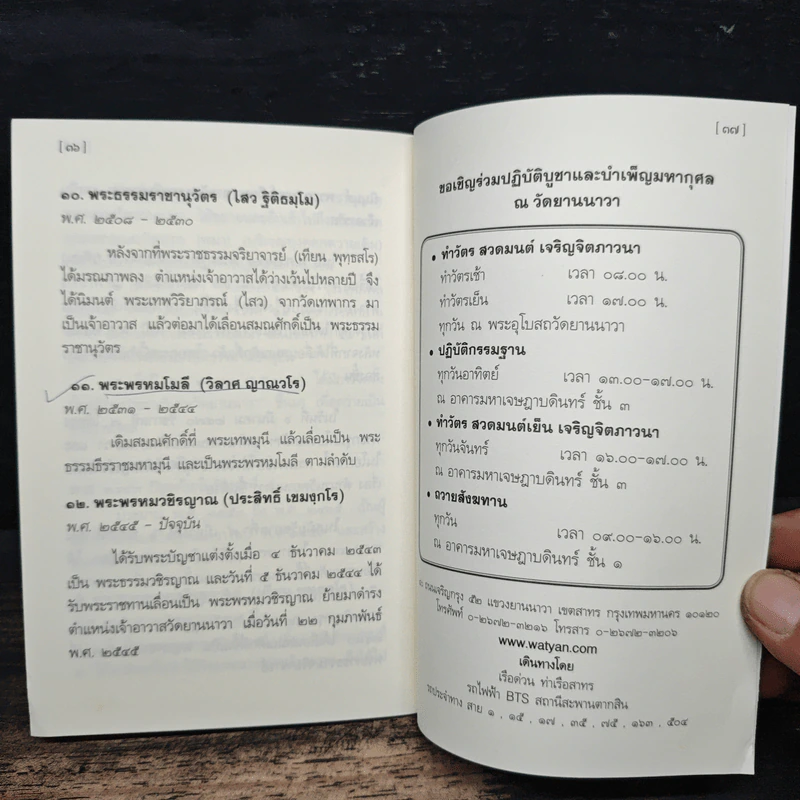 [ ๓๖ ]
๑๐. พระธรรมราชานุวัตร (ไสว ฐิติธมฺโม)
พ.ศ. ๒๕๐๘ - ๒๕๓๐
หลังจากที่พระราชธรรมจริยาจารย์ (เทียน พุทฺธสโร)
ได้มรณภาพลง ตำแหน่งเจ้าอาวาสได้ว่างเว้นไปหลายปี จึง
ได้นิมนต์ พระเทพวิริยาภรณ์ (ไสว) จากวัดเทพากร มา
เป็นเจ้าอาวาส แล้วต่อมาได้เลื่อนสมณศักดิ์เป็น พระธรรม
ราชานุวัตร
๑๑. พระพรหมโมลี (วิลาศ ญาณวโร)
พ.ศ. ๒๕๓๑ - ๒๕๔๔
เดิมสมณศักดิ์ที่ พระเทพมุนี แล้วเลื่อนเป็น พระ
ธรรมธีรราชมหามุนี และเป็นพระพรหมโมลี ตามลำดับ
๑๒. พระพรหมวชิรญาณ (ประสิทธิ์ เขมงฺกโร)
พ.ศ. ๒๕๔๕ - ปัจจุบัน
ได้รับพระบัญชาแต่งตั้งเมื่อ ๔ ธันวาคม ๒๕๔๓
เป็น พระธรรมวชิรญาณ และวันที่ ๕ ธันวาคม ๒๕๔๔ ได้
รับพระราชทานเลื่อนเป็น พระพรหมวชิรญาณ ย้ายมาดำรง
ตำแหน่งเจ้าอาวาสวัดยานนาวา เมื่อวันที่ ๒๒ กุมภาพันธ์
พ.ศ. ๒๕๔๕
[ ๓๗ ]
ขอเชิญร่วมปฏิบัติบูชาและบำเพ็ญมหากุศล
ณ วัดยานนาวา
• ทำวัตร สวดมนต์ เจริญจิตภาวนา
ทำวัตรเช้า เวลา ๐๘.๐๐ น.
ทำวัตรเย็น เวลา ๑๗.๐๐ น.
ทุกวัน ณ พระอุโบสถวัดยานนาวา
• ปฏิบัติกรรมฐาน
ทุกวันอาทิตย์ เวลา ๑๓.๐๐-๑๗.๐๐ น.
ณ อาคารมหาเจษฎาบดินทร์ ชั้น ๓
• ทำวัตร สวดมนต์เย็น เจริญจิตภาวนา
ทุกวันจันทร์ เวลา ๑๖.๐๐-๑๗.๐๐ น.
ณ อาคารมหาเจษฎาบดินทร์ ชั้น ๓
• ถวายสังฆทาน
ทุกวัน เวลา ๐๙.๐๐-๑๖.๐๐ น.
ณ อาคารมหาเจษฎาบดินทร์ ชั้น ๑
ถนนเจริญกรุง ๕๒ แขวงยานนาวา เขตสาทร กรุงเทพมหานคร ๑๐๑๒๐
โทรศัพท์ ๐-๒๖๗๒-๓๒๑๖ โทรสาร ๐-๒๖๗๒-๓๒๐๖
www.watyan.com
เดินทางโดย
เรือด่วน ท่าเรือสาทร
รถไฟฟ้า BTS สถานีสะพานตากสิน
รถประจำทาง สาย ๑ , ๑๕ , ๑๗ , ๓๕ , ๗๕ , ๑๖๓ , ๕๐๔